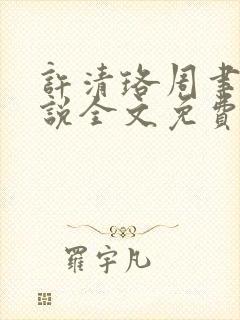 許清珞周聿
說全文免費
羅宇凡